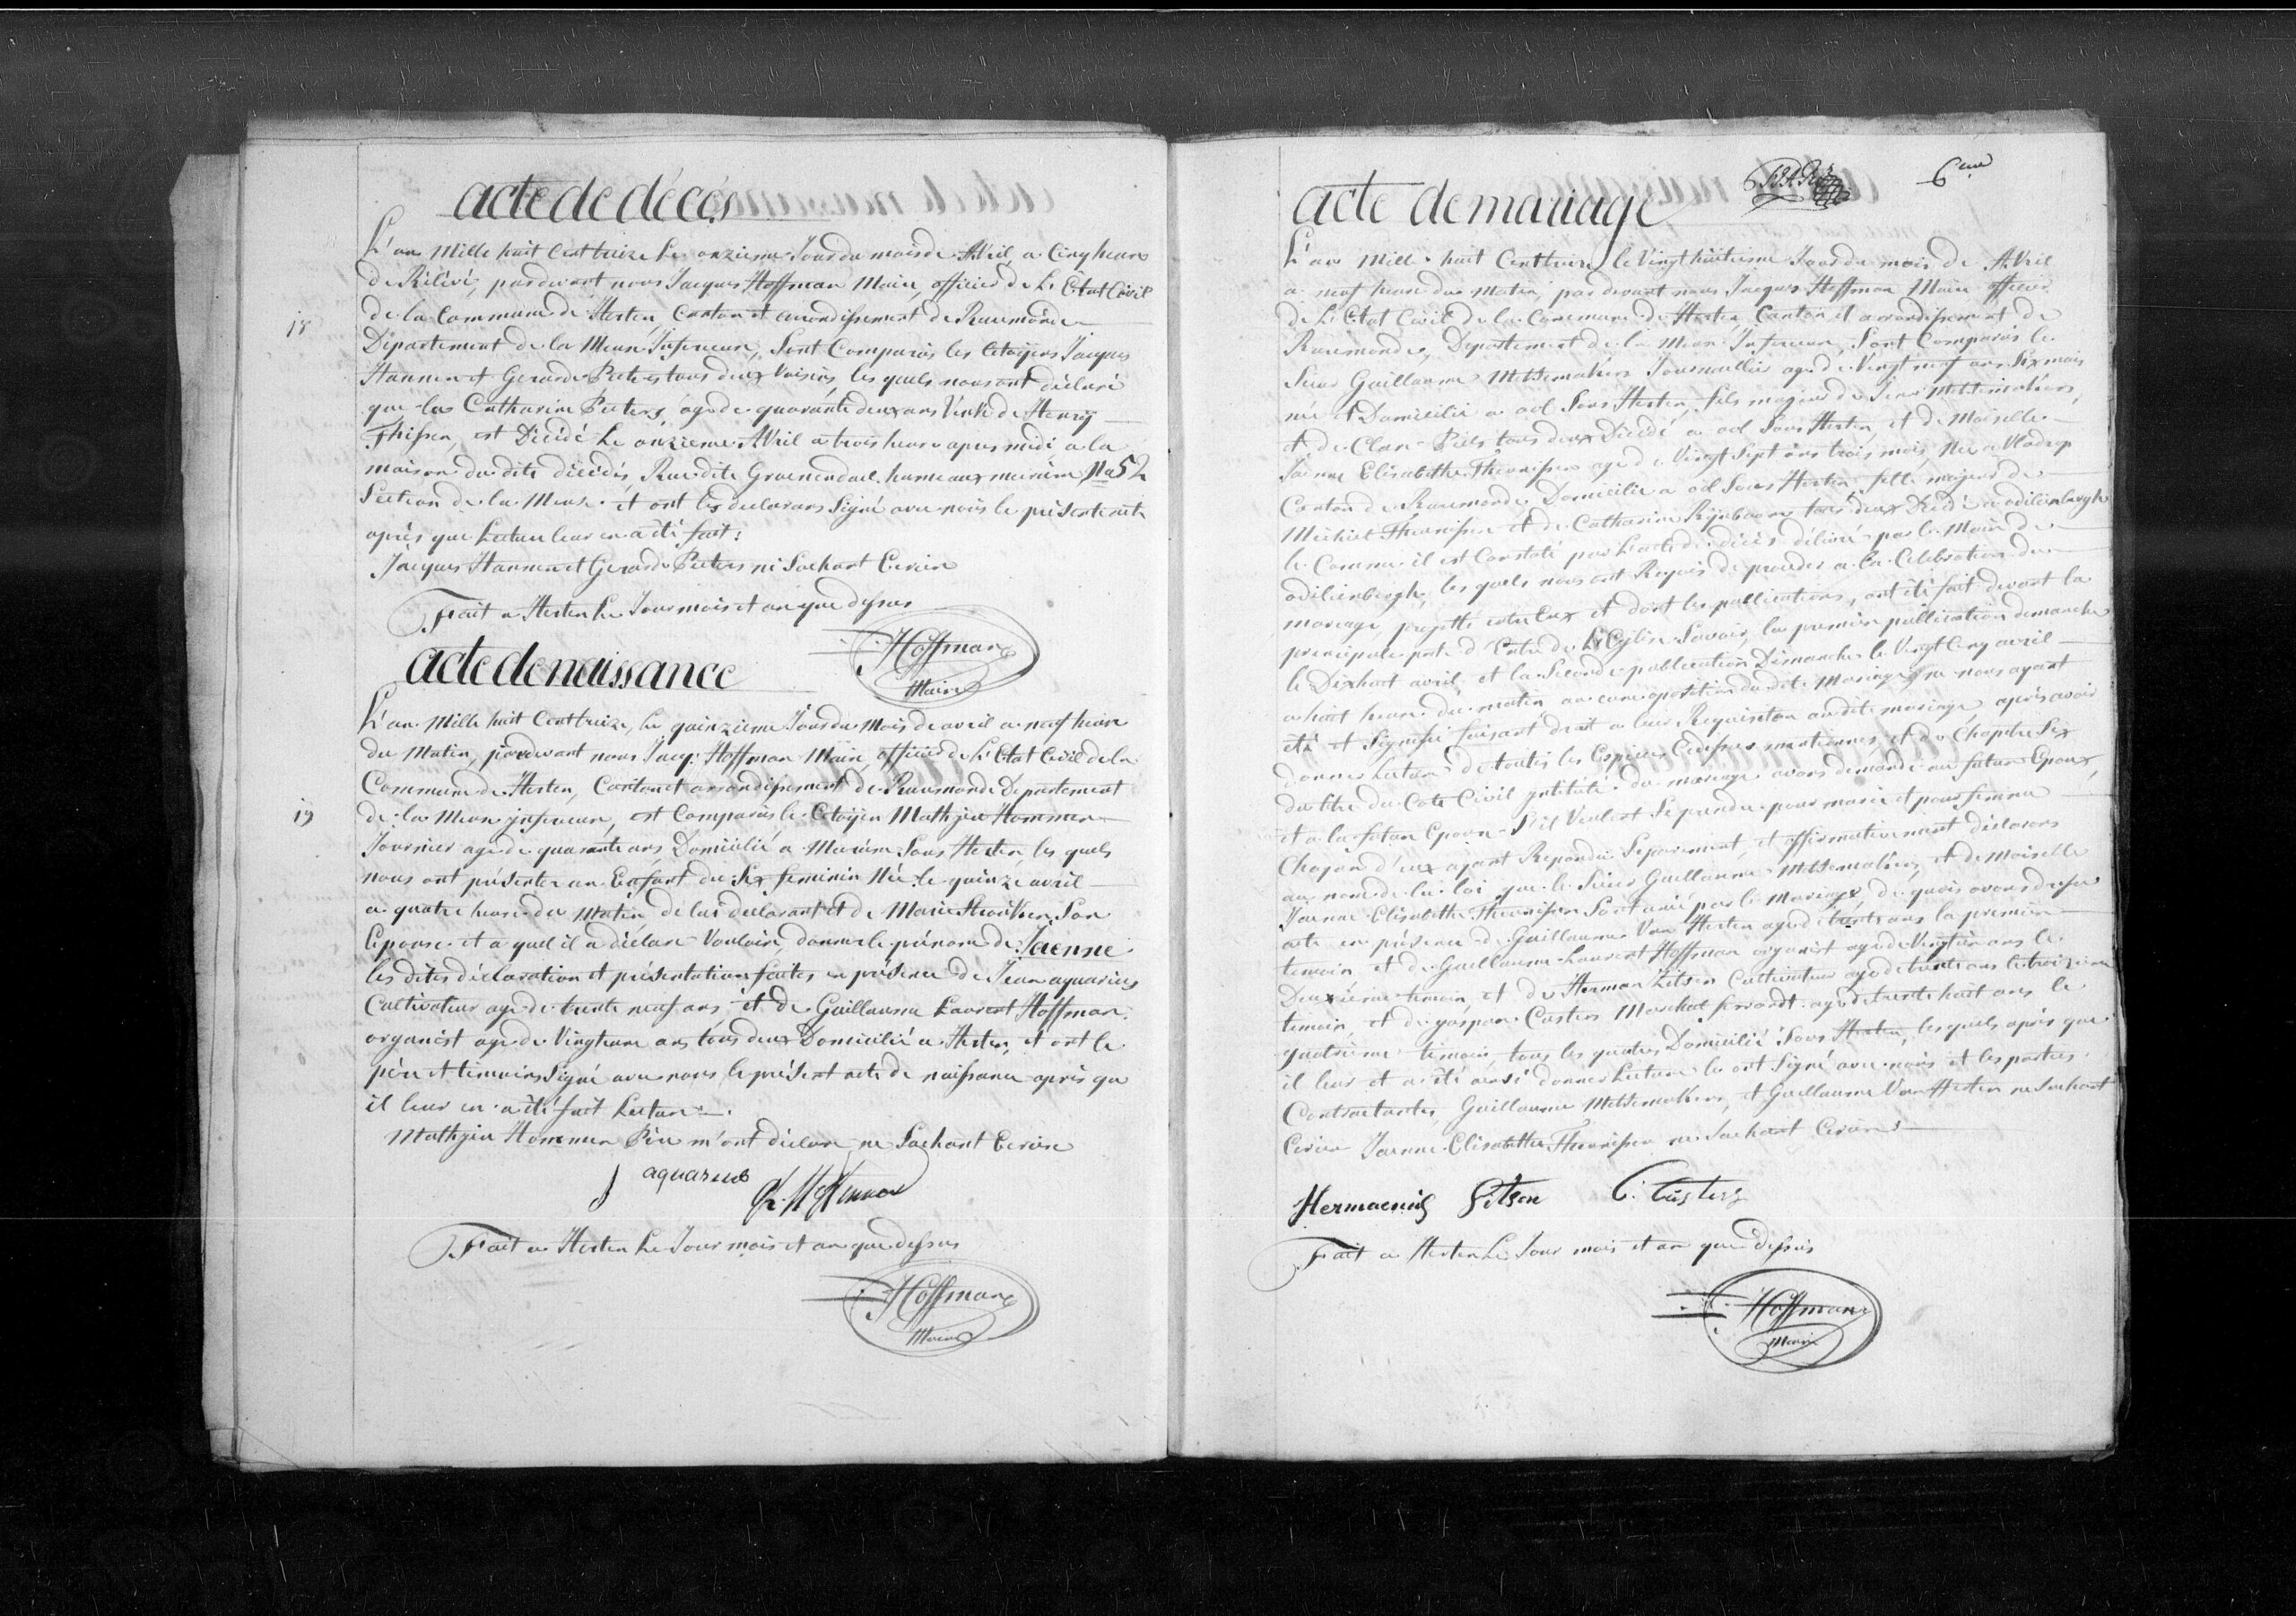 acte de décès
L'an Mille huit Cent treize Le onzieme Jour du mois de Avril a Cinq heure
de Rélévé, pardevant nous Jacques Hoffman Maire, officier de L'Etat Civil
18
de la Commune de Herten Canton et arrondissement de Ruremonde
Département de la Meuse Inferieure, Sont Comparus les Citoyens Jacques
Hannen et Gerard Peeters tous deux Voisins les quels nous ont déclaré
que la Catharine Peeters, agé de quarante deux ans Veuve de Henry
Thissen, est Décidé Le onzieme Avril a trois heure apres midi, a la
maison du dite décidés, Rue dite Groenendael hameaux merum No 52
Section de la Meuse et ont les declarans Signé avec nous le présent acte
après que Lecture leur en a été fait:
Jacques Hannen et Gerard Peeters ni Sachant Ecrire
Fait a Herten Le Jour mois et an que dessus
J. Hoffman
Maire
acte de naissance
L'an Mille huit Cent treize, Le quinzieme Jour du Mois de avril a neuf heure
du Matin, pardevant nous Jacq. Hoffman Maire, officier de L'Etat Civil de la
Commune de Herten, Canton et arrondissement de Ruremonde Departement
19
de la Meuse inferieure, est Comparus le Citoyen Mathieu Hommen
Journier agé de quarante ans, Domicilié a Merum Sous Herten les quels
nous ont présenter un Enfant du Sex feminin Née le quinze avril
a quatre heure du Matin de lui declarant et de Marie Son
Epouse et a quel il a déclaré Vouloir donner le prénom de Jaenne
les dites déclaration et présentation faites en présence de Jean aquarius
Cultivateur agé de trente neuf ans, et de Guillaume Laurent Hoffman
organist agé de Vingt ans tous deux Domicilié a Herten, et ont le
père et temoins Signé avec nous le présent acte de naissance après qu
il leur en a été fait Lecture.
Mathieu Hommen Père m'ont déclaré ne Sachant Ecrire
J aquarius
Fait a Herten Le Jour mois et an que dessus
J. Hoffman
Maire
6eme
acte de mariage
L'an Mille huit Cent treize le Vingt huitieme Jour du mois de Avril
a neuf heure du Matin, par devant nous Jacques Hoffman Maire officier
de L'Etat Civil de la Commune de Herten Canton et arrondissement de
Ruremonde, Departement de la Meuse Inferieure, Sont Comparus le
Sieur Guillaume Metsemakers Journallier agé de Vingt neuf ans Six mois
né et Domicilié a ool Sous Herten, fils majeur de Jean Metsemakers,
et de Clare Peers tous deux Décidé a ool Sous Herten, et de Moiselle
Jaenne Elisabethe Theunissen agé de Vingt Sept ans trois mois, Née a Vlodrop
Canton de Ruremonde Domicilié a ool Sous Herten fille majeur de
Michiel Theunissen et de Catharine tous deux Décidé a odilienbergh
le Comme il est Constaté par L'acte de décès délivré par le Maire de
odilienbergh, les quels nous ont Requis de procéder a la Celebration du
mariage projetté entre Eux et dont les publications, ont été fait devant la
principale porte d'Entré de L'Eglise Savoir, la premier publication dimanche
le Dixhuit avril, et la Seconde publication Dimanche le Vingt Cinq avril
a huit heure du matin aucune oposition du dite Mariage ne nous ayant
été et Signifié faisant droit a leur Requisition au dite mariage après avoir
donner Lecture de toutes les Espieces Cidessus mentionnés et du Chapitre Six
du titre du Code Civil intitulé du mariage avons demandé au futur Epoux,
et a la futur Epouse S'il Veulent Se prendre pour marie et pour femme
Chaqun d'eux ayant Repondu Separement, et affirmativement déclarons
au nom de la loi que le Sieur Guillaume Metsemakers, et de Moiselle
Jaenne Elisabethe Theunissen Sont unie par le Mariage, de quois avons dressé
acte en présence de Guillaume Van Herten agé de trente ans la premier
temoin et de Guillaume Laurent Hoffman organist agé de Vingt ans le
Deuxiéme temoin, et de Herman Zitsen Cultivateur agé de trente ans le troizieme
temoin, et de gaspar Custers Marchal ferrandt agé de trente huit ans le
quatrieme temoin, tous les quatres Domicilié Sous Herten, lesquels après que
il leur et a été aussi donner Lecture le ont Signé avec nous et les parties
Contractantes, Guillaume Metsemakers, et Guillaume Van Herten ne Sachant
Ecrire Jaenne Elisabethe Theunissen ne Sachant Ecrire
Hermaenus Sitsen C. Custers
Fait a Herten Le Jour mois et an que dessus
J. Hoffman
Maire